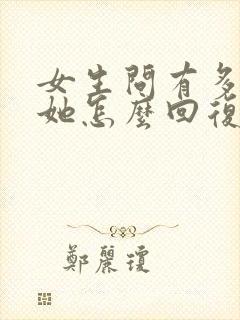 女生問有多
她怎麼回復
鄭麗瓊